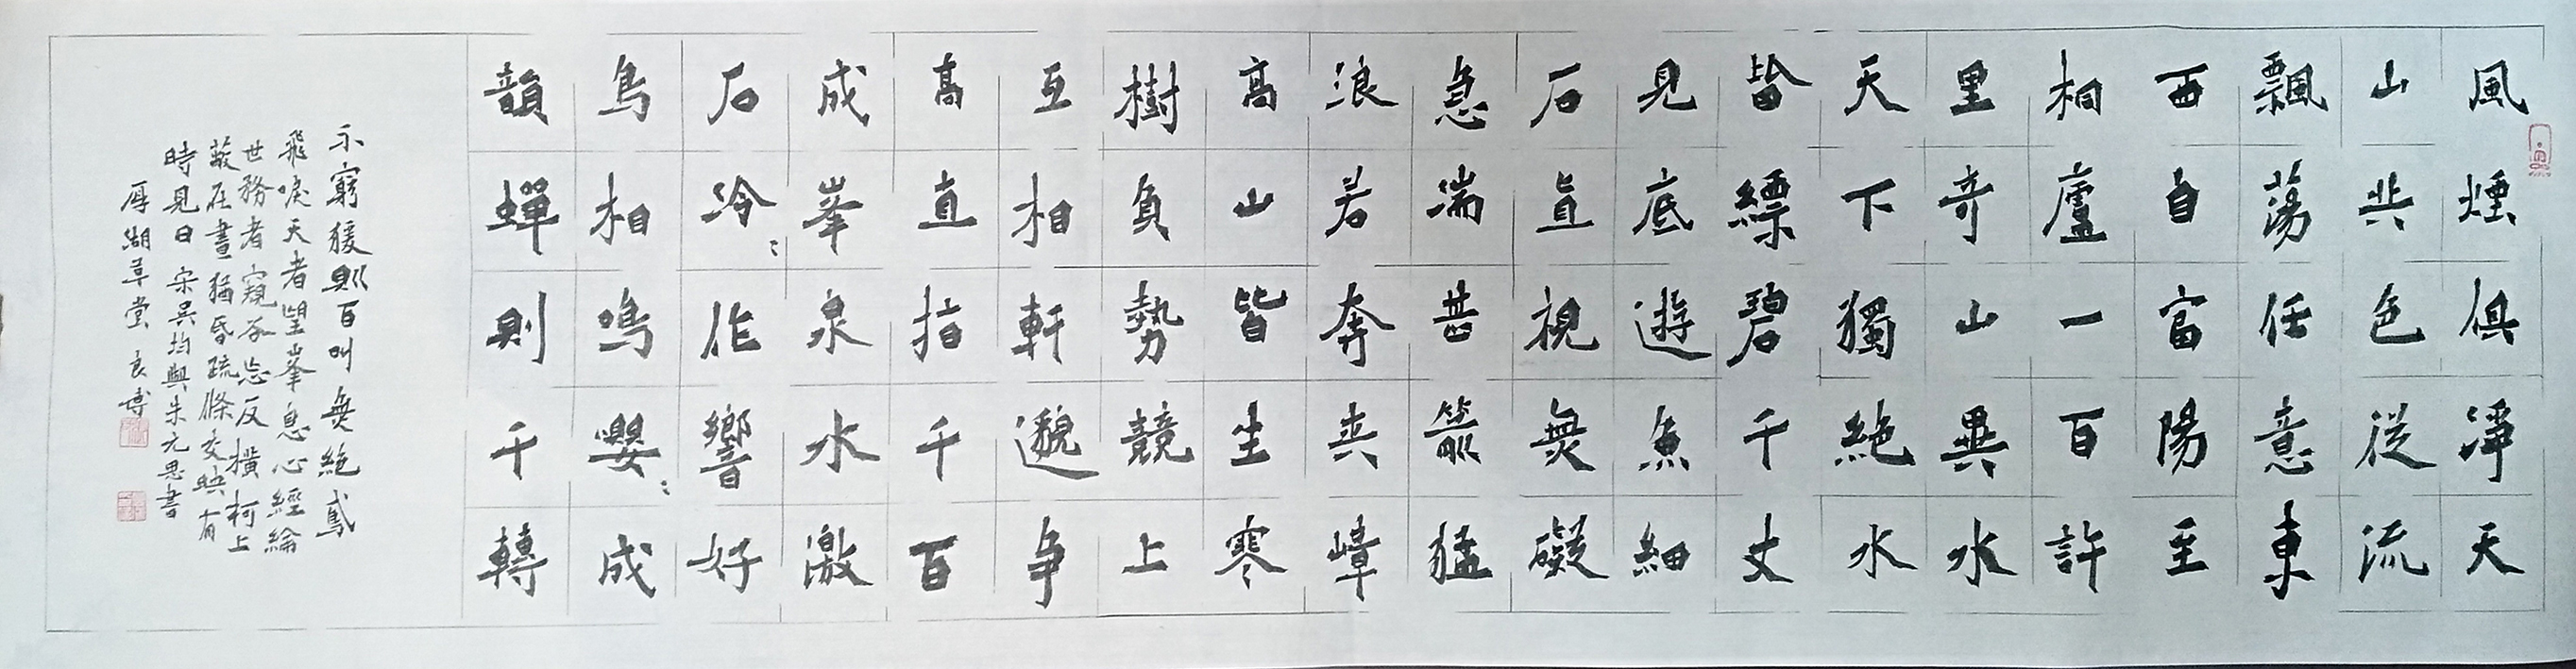 風煙俱淨天
山共色從流
飄蕩任意東
西自富陽至
桐廬一百許
里奇山異水
天下獨絶水
皆縹碧千丈
見底遊魚細
石直視無礙
急湍甚箭猛
浪若奔夾嶂
高山皆生寒
樹負勢競上
互相軒邈争
高直指千百
成峯泉水激
石泠〻作響好
鳥相鳴嚶〻成
韻蟬則千轉
不窮猨則百叫無絶鳶
飛唳天者望峯息心經綸
世務者窺谷忘反橫柯上
蔽在晝猶昏疏條交映有
時見日 宋吳均與朱元思書
厚湖草堂 良博